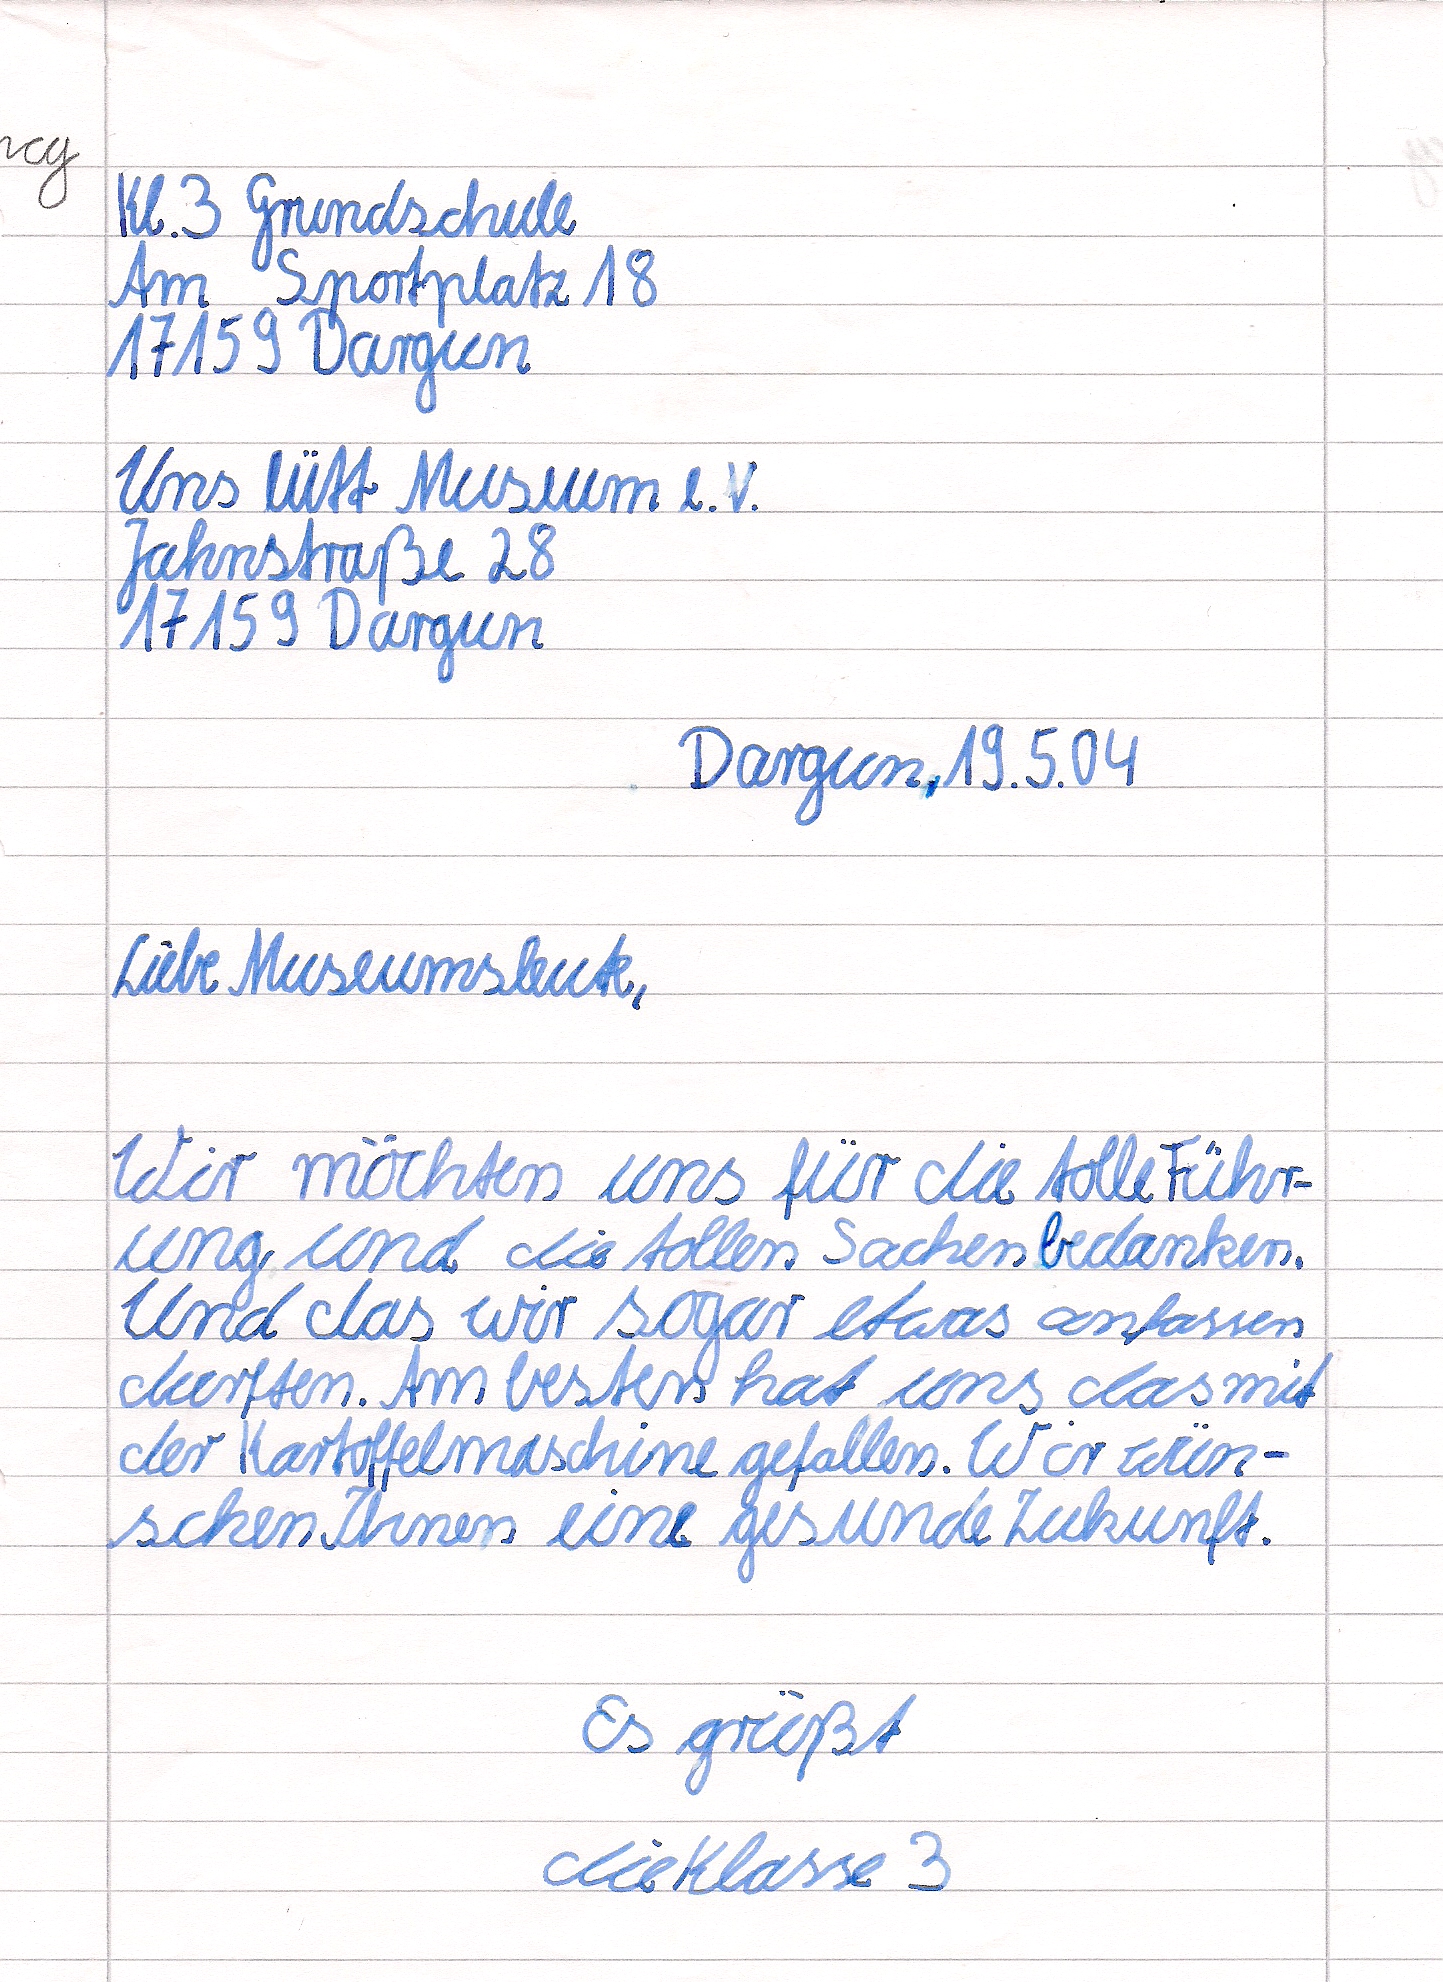 Kl. 3 Grundschule
Am Sportplatz 18
17159 Dargun
Uns lütt Museum e. V.
Jahnstraße 28
17159 Dargun
Dargun, 19.5.04
Liebe Museumsleute,
Wir möchten uns für die tolle Führ-
ung und die tollen Sachen bedanken.
Und das wir sogar etwas anfassen
durften. Am besten hat uns das mit
der Kartoffelmaschine gefallen. Wir wün-
schen Ihnen eine gesunde Zukunft.
Es grüßt
die Klasse 3